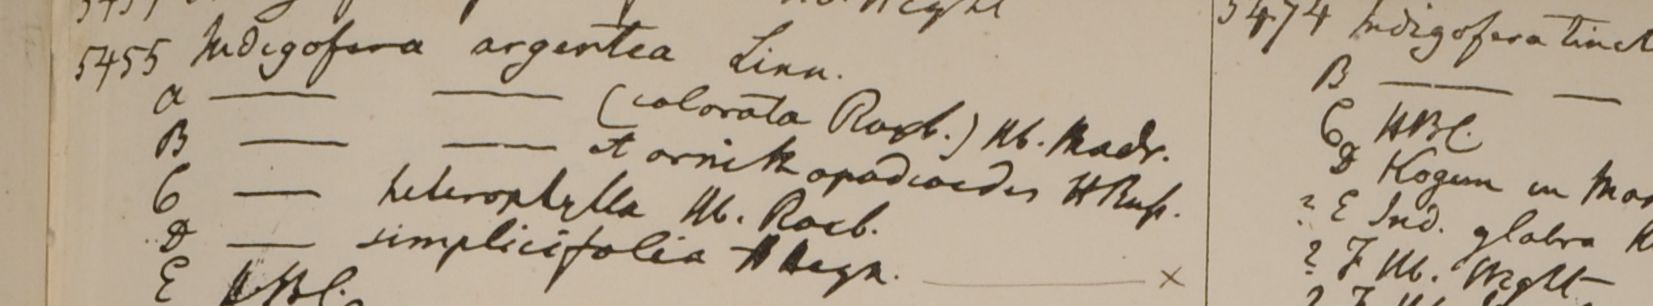 5455 Indigofera argentea Linn.
A —— —— (colorata Roxb.) Hb. Madr.
B —— —— et ornithopodioides H Russ.
C —— heterophylla Hb. Roxb.
D —— simplicifolia H Heyn. —— ×
E HBC.
5474 Indigofera Tinct
B —— ——
C HBC.
D in
? E Ind. glabra
? F Hb. Wight